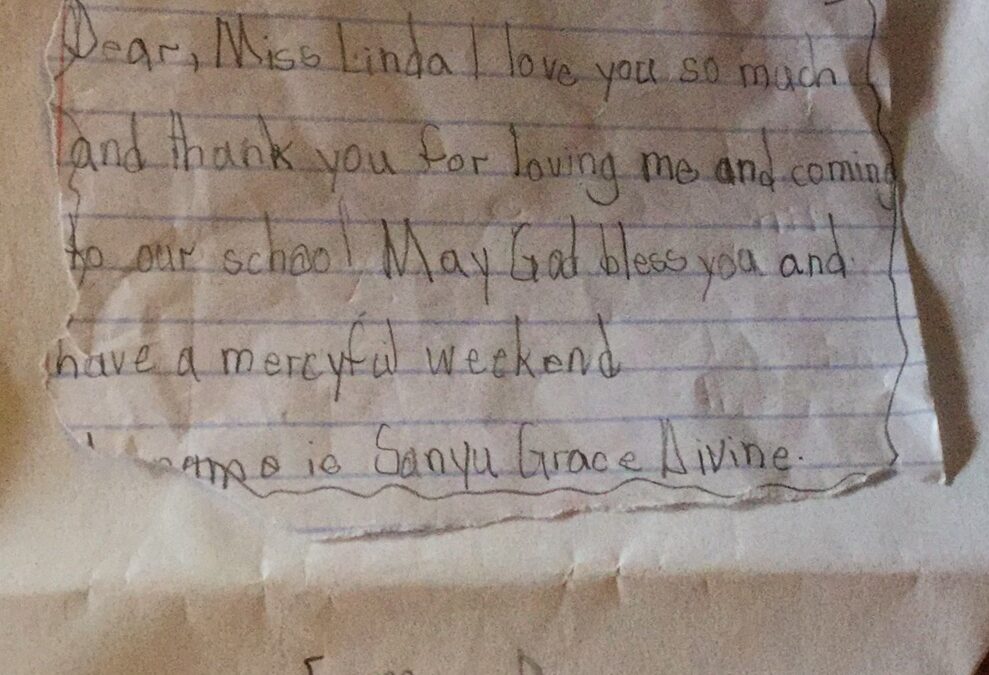 Dear, Miss Linda I love you so much
and thank you for loving me and coming
to our school May God bless you and
have a mercyful weekend
name is Sanyu Grace Divine.